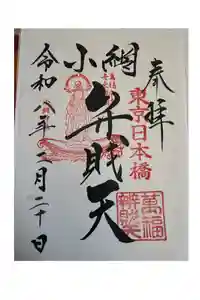 奉拝
東京日本橋
小網
弁財天
萬福
辨財天
令和八年二月二十日